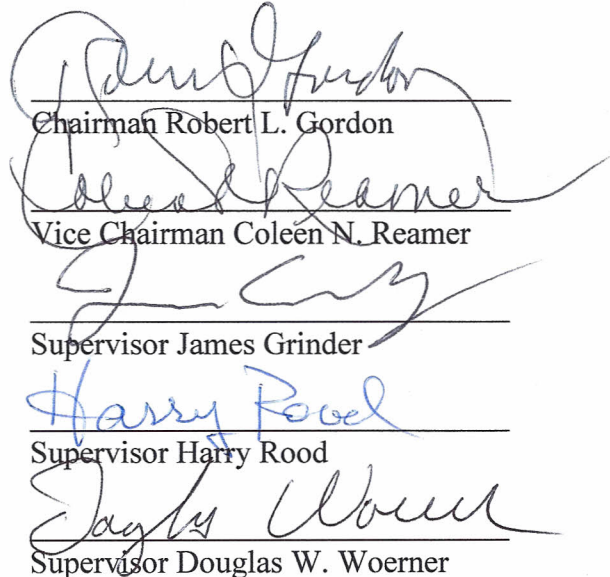 Robert L Gordon
Chairman Robert L. Gordon
Coleen N Reamer
Vice Chairman Coleen N. Reamer
Supervisor James Grinder
Harry Rood
Supervisor Harry Rood
Douglas Woerner
Supervisor Douglas W. Woerner